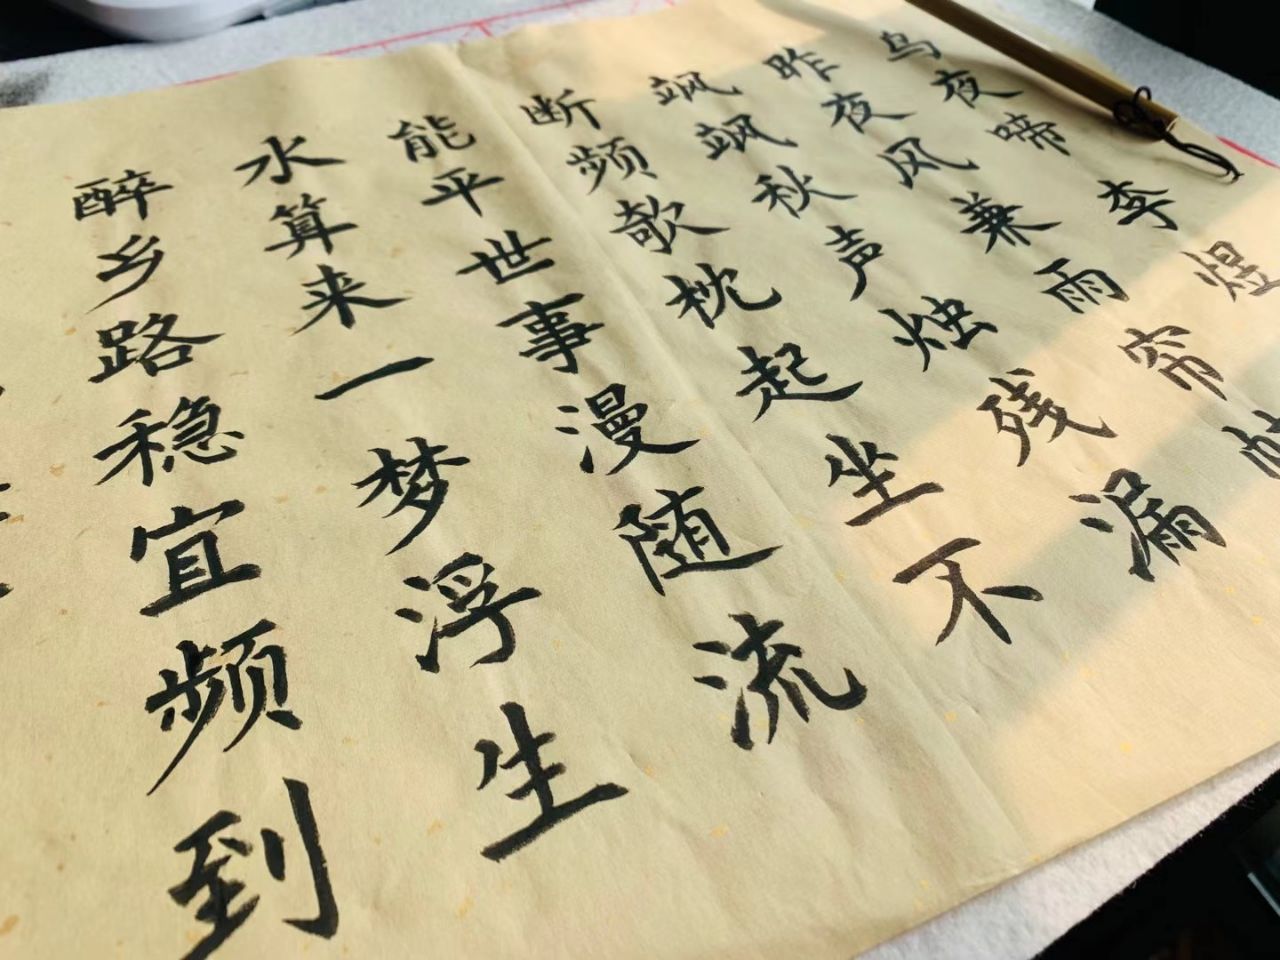 乌夜啼 李煜
昨夜风兼雨帘
飒飒秋声烛残漏
断频欹枕起坐不
能平世事漫随流
水算来一梦浮生
醉乡路稳宜频到